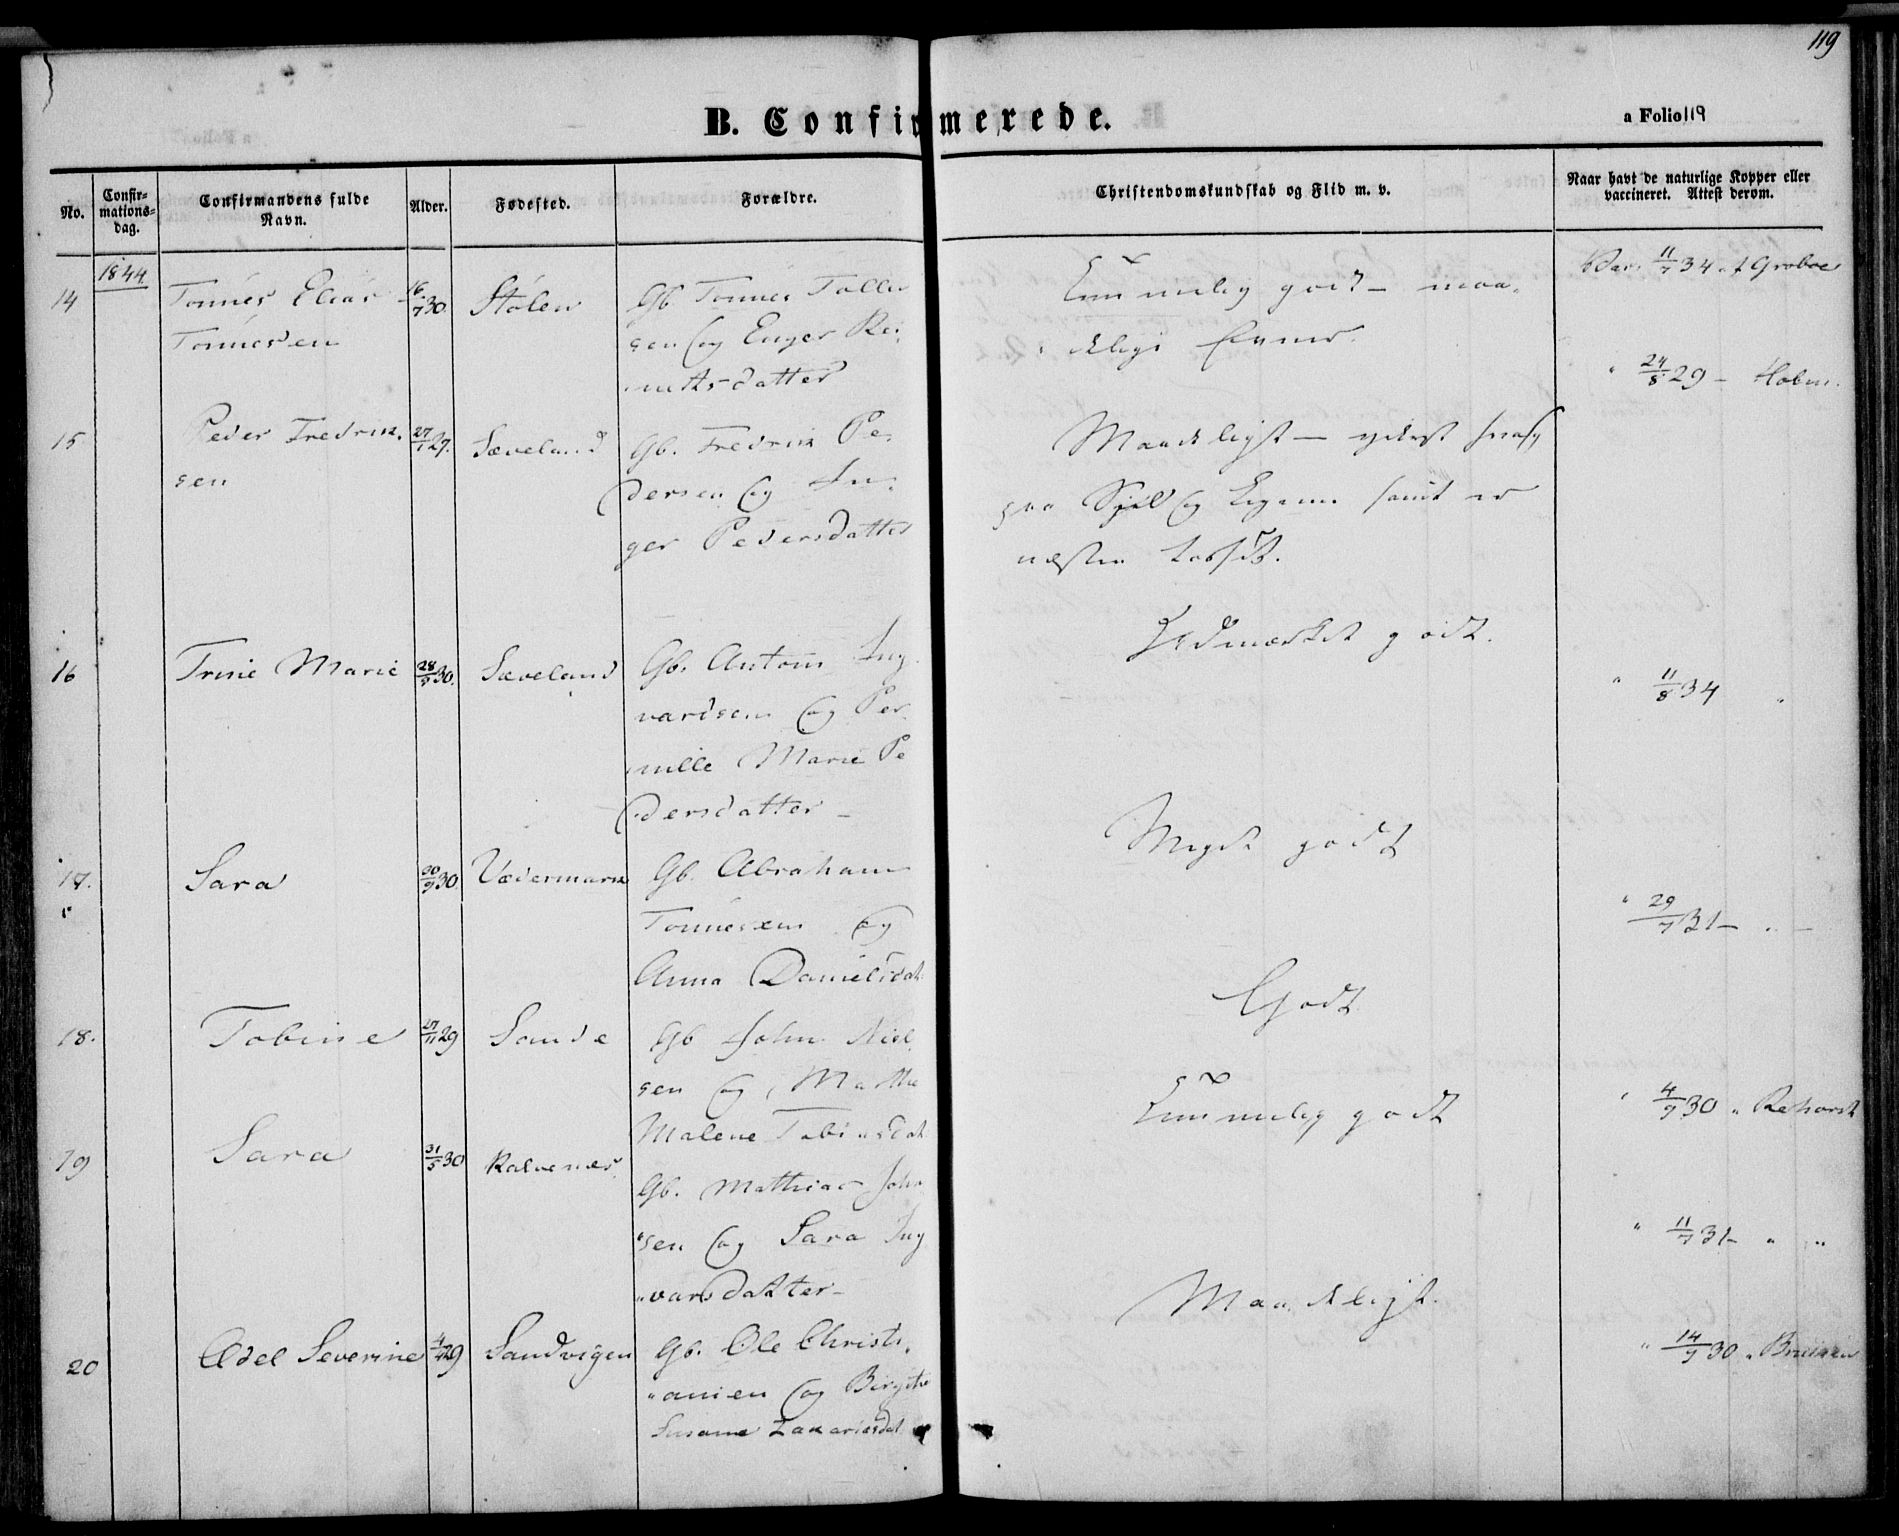 119
B. Confirmerede.
a Folio 119
No.
Confir-
mations-
dag.
Confirmandens fulde
Navn.
Alder.
Fødested.
Forældre.
Christendomskundskab og Flid m. v.
Naar havt de naturlige Kopper eller
vaccineret. Attest derom.
1844
14
Tønnes Elias
Tønnesen
16/7 30.
Stølen
Gb Tønnes Tolle
sen og Enger
datter
Temmelig godt — maa
delige Evner.
Vac. 11/7 34 af Grobve
15
Peder Fredrik
sen
27/1 29.
Sæveland
Gb. Fredrik Pe-
dersen og In-
ger Pedersdatter
Maadeligt — yderst svag
paa Sjæl og Legeme samt er
næsten
" 24/8 29 —
16
Trine Marie
28/5 30.
Sæveland
Gb. Anton Ing
vardsen og Per
nille Marie Pe
dersdatter —
Udmærket godt.
" 11/8 34 "
17.
Sara
30/9 30.
Vedermark
Gb. Abraham
Tønnesen og
Anna Danielsdat
Meget godt
" 29/7 31 — " —
18.
Tobine
27/11 29
Sande
Gb John Niel
sen og Marthe
Malene Tobiasdat
Godt
" 4/7 30 " Rehorst
19
Sara
31/5 30
Kalvenes
Gb. Mathias John
"sen og Sara Ing
"varsdatter —
Temmelig godt
" 11/7 31 — " "
20
Adel Severine
29
Sandvigen
Gb. Ole Christi
"ansen og Birgithe
Susanne Zakariasdat
Maadeligt.
" 14/9 30 "